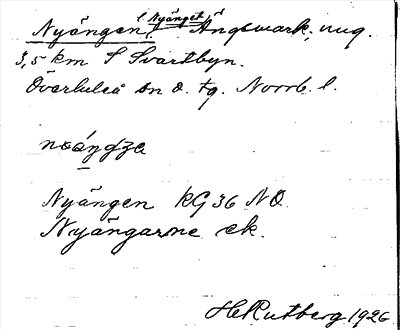 Nyängen (Nyänget) Ängsmark, nug.
3,5 km S Svartbyn.
Överluleå sn o. tg. Norrb. l.
Nyängen KG 36 NO
Nyängarne ek.
H Rutberg 1926